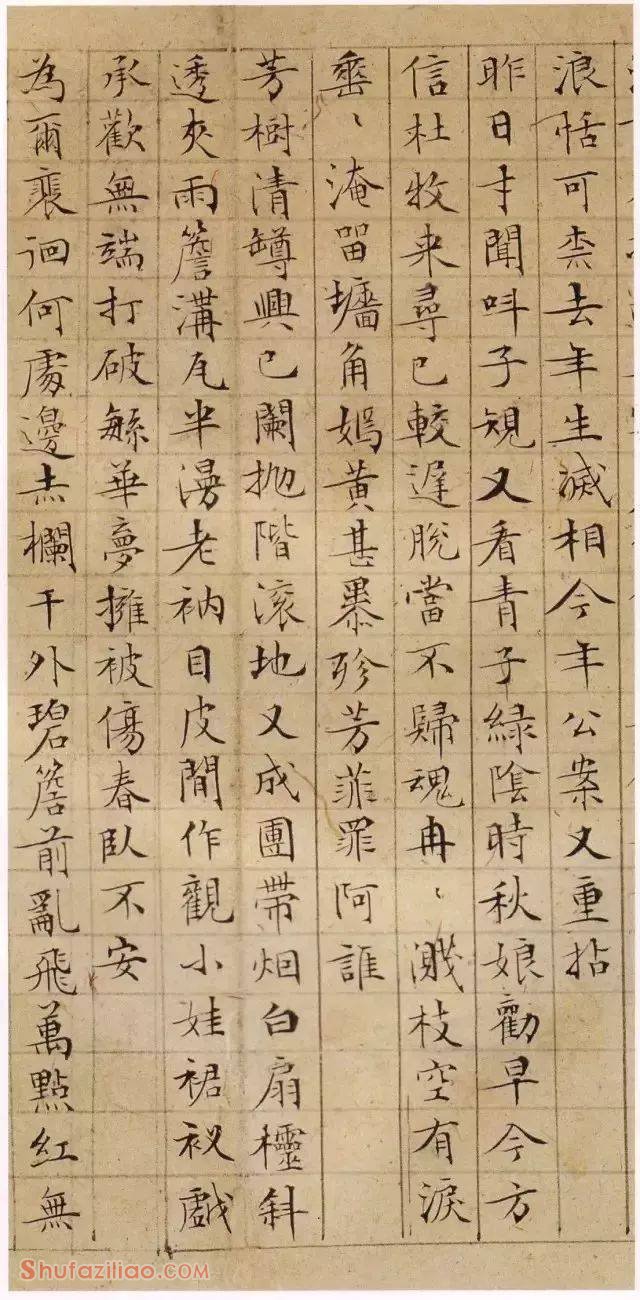 浪恬可柰去年生滅相今年公案又重拈
昨日才聞呌子規又看青子緑陰時秋娘勸早今方
信杜牧来尋已較遅脫當不歸魂冉〻濺枝空有淚
垂〻淹留墻角嫣黄甚暴殄芳菲罪阿誰
芳樹清罇興已闌抛階滚地又成團帶烟白扇櫺斜
透夾雨簷溝瓦半漫老衲目皮閒作觀小娃裙衩戲
承歡無端打破繁華夢擁被傷春臥不安
為爾裵徊何處邊赤欄干外碧簷前亂飛萬點紅無
Shufaziliao.com